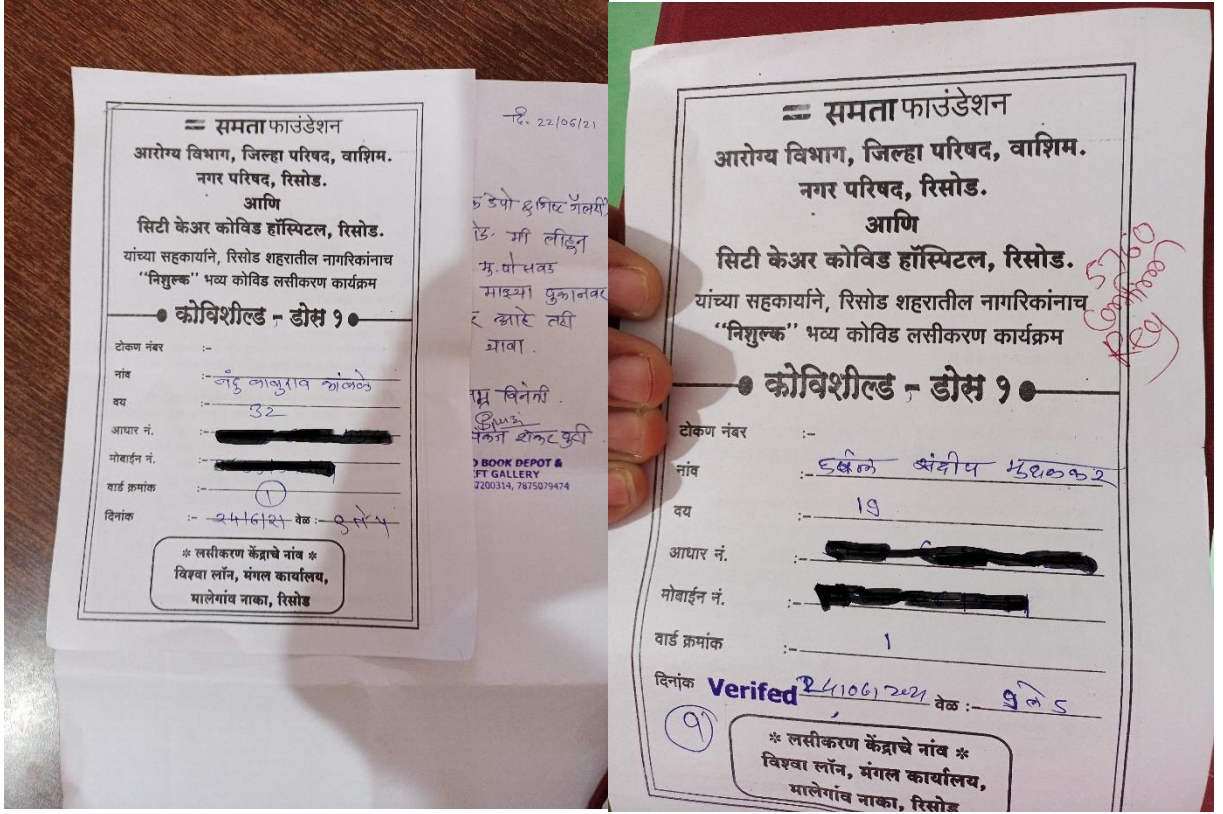 समता फाउंडेशन
आरोग्य विभाग, जिल्हा परिषद, वाशिम.
नगर परिषद, रिसोड.
आणि
सिटी केअर कोविड हॉस्पिटल, रिसोड.
यांच्या सहकार्याने, रिसोड शहरातील नागरिकांनाच
“निशुल्क” भव्य कोविड लसीकरण कार्यक्रम
कोविशील्ड - डोस १
टोकण नंबर :-
नांव :- नंदु बाबुराव
वय :- 32
आधार नं. :-
मोबाईन नं. :-
वार्ड क्रमांक :- 1
दिनांक :- 24/6/21 वेळ :- 9 ते 5
* लसीकरण केंद्राचे नांव *
विश्वा लॉन, मंगल कार्यालय,
मालेगांव नाका, रिसोड
दि. 22/06/21
डेपो & गिफ्ट गॅलरी
मी लीहून
मु. पो सवड
माझ्या दुकानवर
आहे तरी
द्यावा.
नम्र विनंती.
BOOK DEPOT &
FT GALLERY
7200314, 7875079474
समता फाउंडेशन
आरोग्य विभाग, जिल्हा परिषद, वाशिम.
नगर परिषद, रिसोड.
आणि
सिटी केअर कोविड हॉस्पिटल, रिसोड.
यांच्या सहकार्याने, रिसोड शहरातील नागरिकांनाच
“निशुल्क” भव्य कोविड लसीकरण कार्यक्रम
5760
Reg
कोविशील्ड - डोस १
टोकण नंबर :-
नांव :- संदीप मुधळकर
वय :- 19
आधार नं. :-
मोबाईन नं. :-
वार्ड क्रमांक :- 1
दिनांक Verifed 24/06/2021 वेळ :- 9 ते 5
9
* लसीकरण केंद्राचे नांव *
विश्वा लॉन, मंगल कार्यालय,
मालेगांव नाका, रिसोड